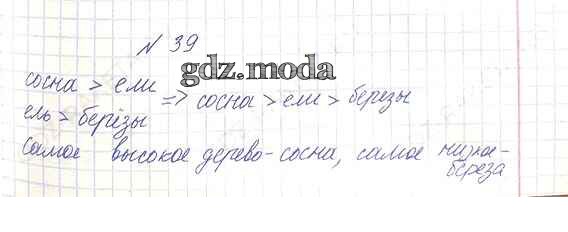 № 39
gdz.moda
сосна > ели
ель > берёзы
=> сосна > ели > березы
самое высокое дерево - сосна, самое низкое -
береза